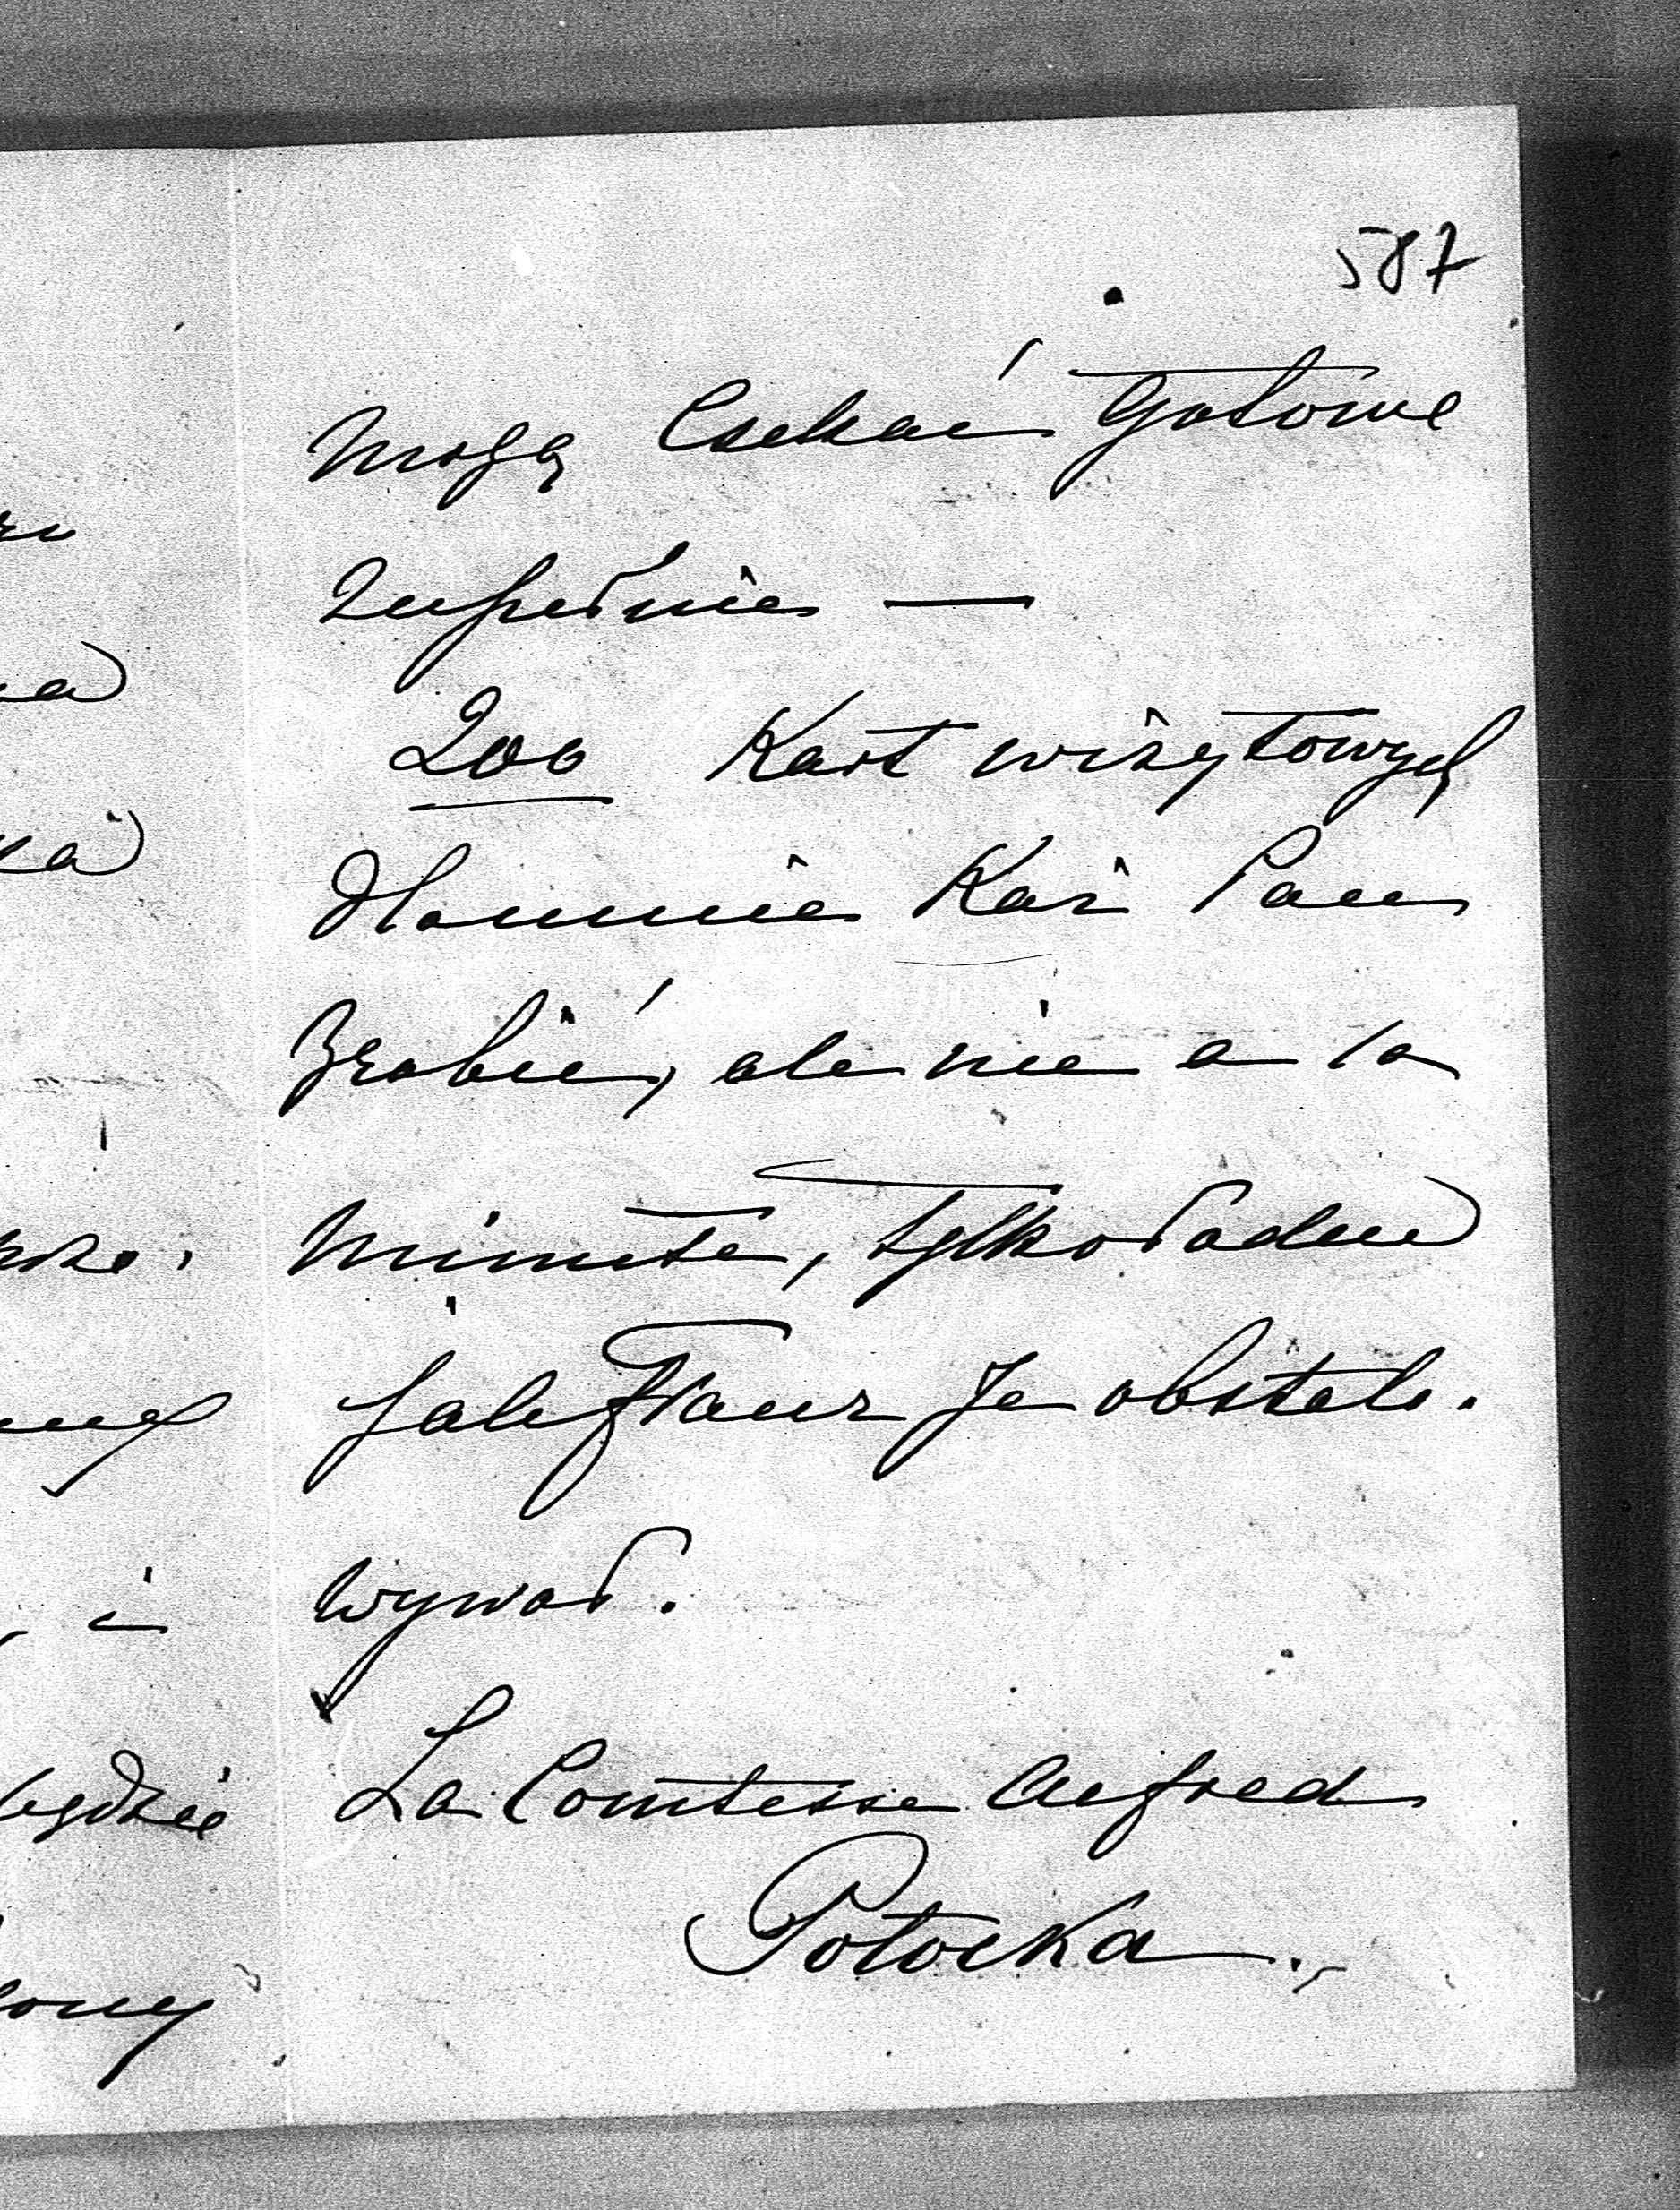 587
mogą Czekać Gotowe
Zupełnie —
200 Kart wizytowych
dla mnie Każ Pan
Zrobić, ale nie a la
minute, tylko ładne
jak Franz Je obstalo.
wywał.
La Comtesse Alfred
Potocka.